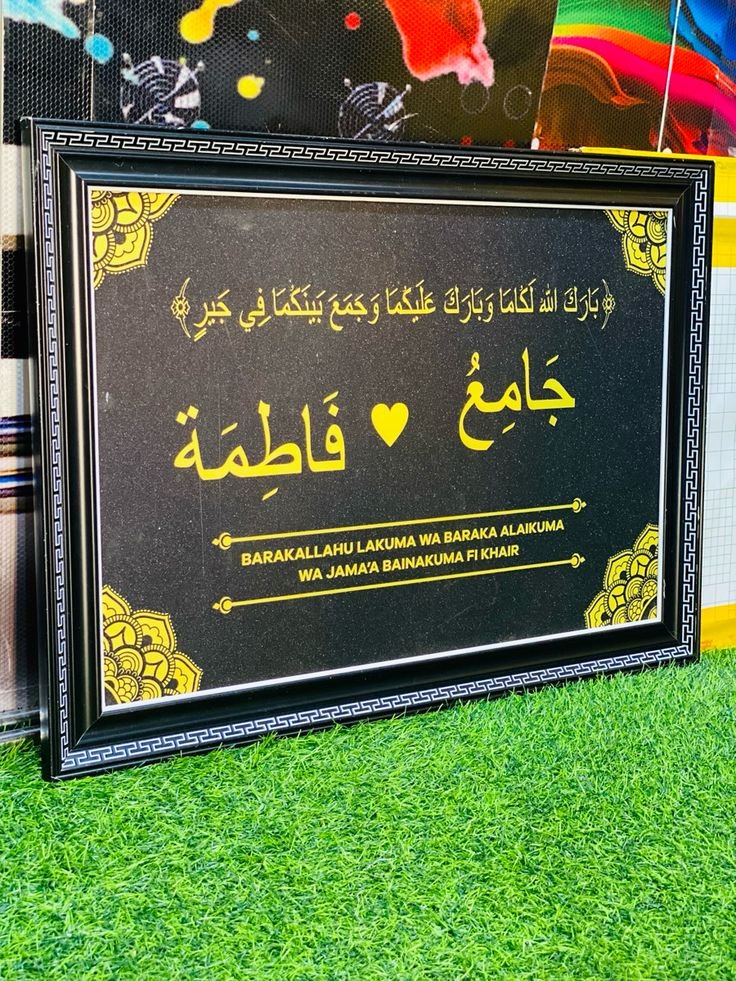 بَارَكَ الله لَكُامَا وَبَارَكَ عَلَيْكُمَا وَجَمَعَ بَيْنَكُمَا فِي جَيرٍ
جَامِعُ ♥ فَاطِمَة
BARAKALLAHU LAKUMA WA BARAKA ALAIKUMA
WA JAMA'A BAINAKUMA FI KHAIR